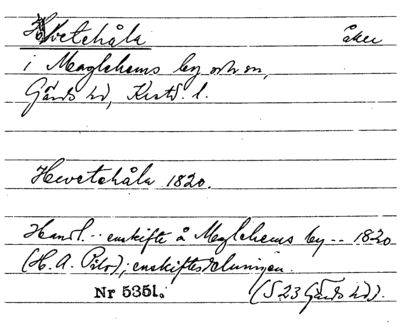 Hvetehåla åker
i Maglehems by och sn,
Gärds hd, Krstd. l.
Hvetehåla 1820.
Handl. -- enskifte å Maglehems by -- 1820
(H. A. ); enskiftesdelningen.
Nr 5351. (S 23 Gärds hd).